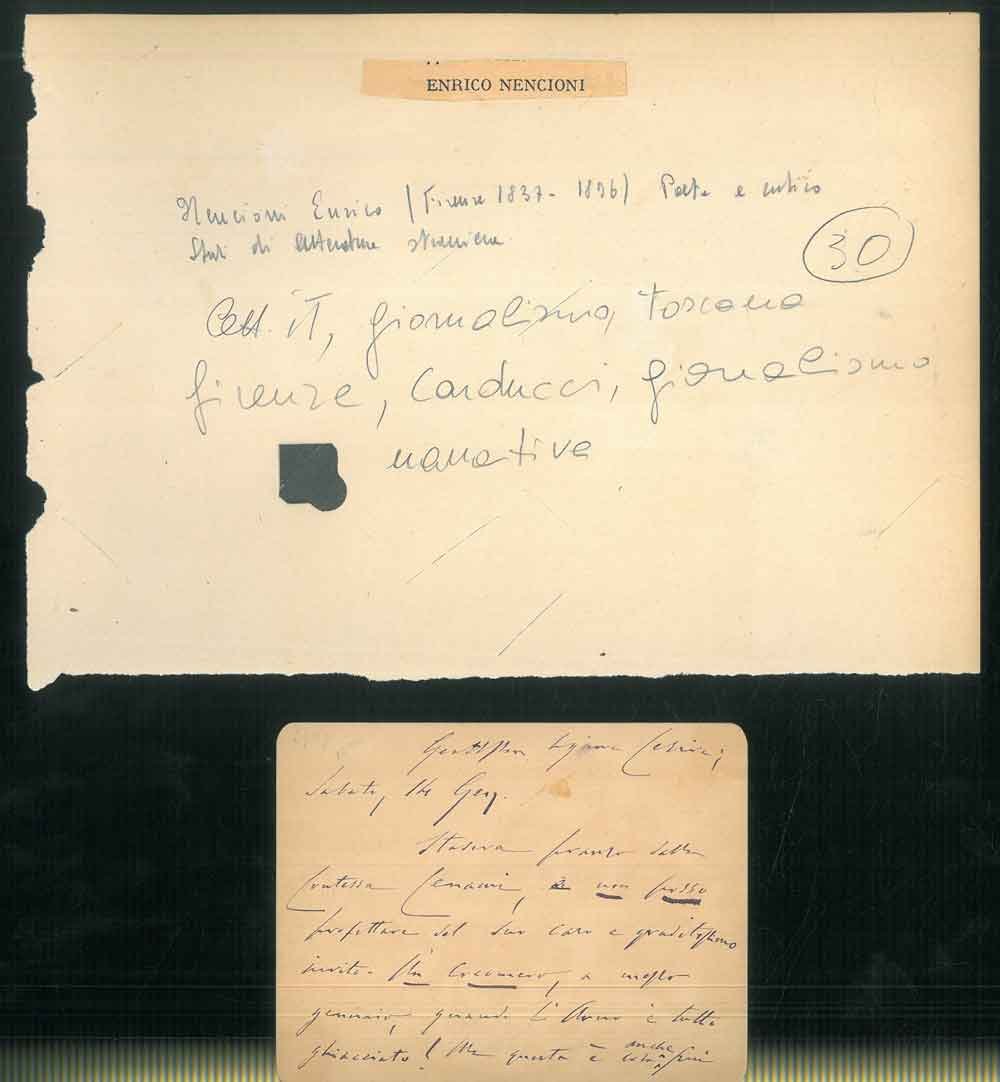 ENRICO NENCIONI
Nencioni Enrico (Firenze 1837-1896) Poeta e critico
Studi di letterature straniere.
30
Lett. iT, giornalismo, toscana
firenze, Carducci, giornalismo
narrativa
Signora
Sabato, 14 Gen.
Stasera pranzo dalla
Contessa Cenami, e non posso
profittare del suo caro e graditissimo
invito. Un cocomero, a mezzo
gennaio, quando l'Arno è tutto
ghiacciato! Ma questa è anche più